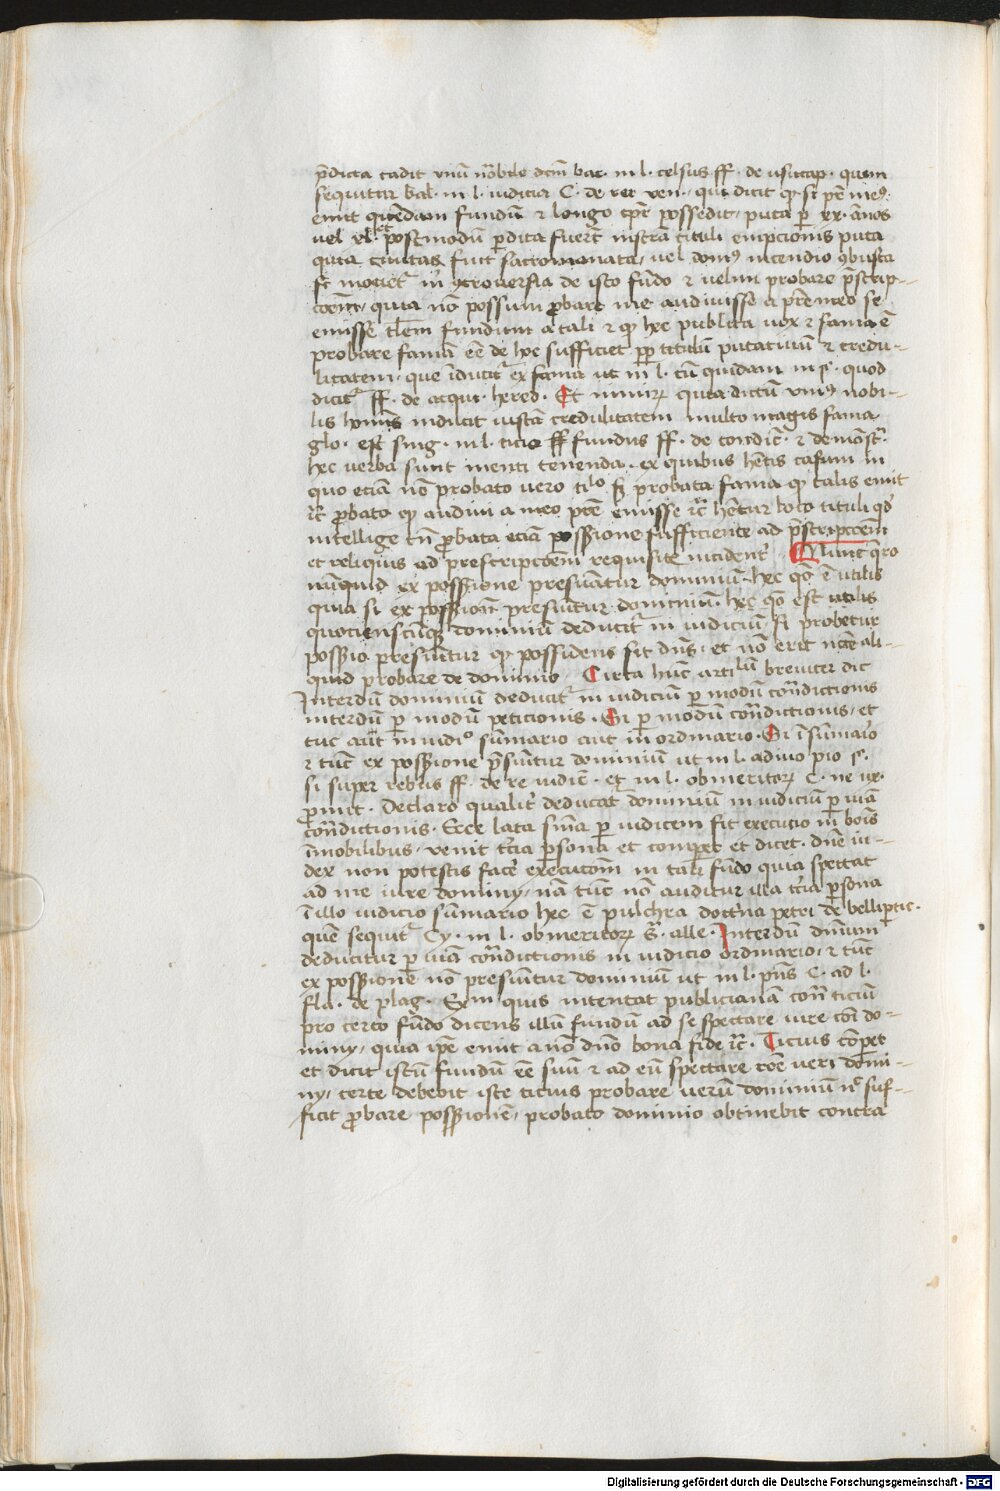 p̄dicta cadit vnū nōbile dcm̄ bar. in l. celsus ff. de vsucap. quem
sequitur bal. in l. iudicia C. de rei ven. qui dicit qꝫ si pr̄ meꝰ
emit quēdam fundū ⁊ longo tpr̄e possedit, puta ꝑ xx. ānos
uel xl. et postmodū ꝑdita fuerīt instrā tituli empcionis puta
quia ciuitas fuit sacromanata, uel domꝰ incendio ꝯbusta
sꝫ mouet᷑ m̄ ꝯtrouersia de isto fūdo ⁊ uelim probare p̄scrip-
cōem, quia nō possum ꝓbare me audiuisse a pr̄e meo se
emisse tlem fundum a tali ⁊ qꝫ hec publica uox ⁊ fama ē
probare famā eē de hoc sufficiet ꝓp titulū putatiuū ⁊ credu-
litatem. que īducit᷑ ex fama ut in l. cū quidam in §. quod
dicit᷑ ff. de acqui. hered. Et nimirꝝ quia dictū vniꝰ nobi-
lis hoīnis inducit iustā credulitatem multo magis fama
glo. est sing. in l. ticio ff fundus ff. de condic̄. ⁊ demōst᷑.
hec verba sunt menti tenenda. ex quibus hētis casum in
quo eciā nō probato vero titᷝlo sꝫ probata fama qꝫ talis emit
⁊c̄ ꝓbato qꝫ audiui a meo pr̄e emisse ⁊c̄ hētur loco tituli qd̄
intellige tn̄ ꝓbata eciā possessione sufficiente ad p̄scripcōem
et reliquis ad prescripcōem requisitis incident᷑. Nunc q̄ro
nunquid ex possessione presumatur dominium. hec qō ē utilis
quia si ex possessione presumitur dominium. hec qō est utilis
quociensc̄unqꝫ dominiū deducit᷑ in iudiciū si probetur
possessio presumitur qꝫ possidens sit dn̄s, et nō erit nc̄ce ali-
quid probare de dominio Circa hūc articulū breuiter dic
Interdū dominiū deducit᷑ in iudiciū ꝑ modū contradictionis
interdū ꝑ modū peticionis. Si ꝑ modū contradictionis, et
tūc aut in iudiᵒ sūmario aut in ordinario. Si ī sūmaᵒrio
⁊ tūc ex possessione p̄sumitur dominium ut in l. a diuo pio §.
si super rebus ff. de re iudic̄. et in l. ob meritorꝝ C. ne ux.
ꝓ mit. Declaro qualit᷑ deducat᷑ dominiū in iudiciū ꝑ uiā
contradictionis. Ecce lata sn̄ia ꝑ iudicem fit execucio in bonis
īmobilibus, venit tc̄ia ꝑsona et comꝑet et dicet. dn̄e iu-
dex non potestis facē execucōem in tali fūdo quia spectat
ad me iure dominy, nā tūc nō auditur illa tc̄ia ꝑsona
ī illo iudicio sūmario hec ē pulchra doctīna petri de bellꝑtic.
quē sequit᷑ Cy. in l. ob meritorꝝ s̄. alle. Interdū dn̄ium
deducitur ꝑ uiā contradictionis in iudicio ordinario, ⁊ tūc
ex possessione nō presumitur dominiū ut in l. pn̄s C. ad l.
fla. de plag. Exm̄ quis intentat publicianā contra ticiū
pro certo fūdo dicens illū fundū ad se spectare iure cōi do-
miny, quia ipe emit a nō dn̄o bona fide ⁊c̄. Ticius cōpet
et dicit istū fundū eē suū ⁊ ad eū spectare rōe ueri domi-
ny, certe debebit iste ticius probare uerū dominiū nᵒ suf-
ficit ꝓbare possessionē, probato dominio obtinebit contra